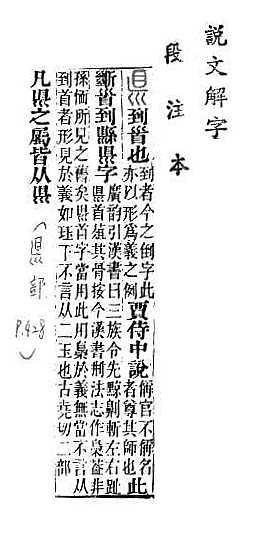 說文解字
段注本
県到𩠐也到者今之倒字此亦以形爲義之例賈侍中說解官不解名者尊其師也此
斷𩠐到縣県字廣韵引漢書曰三族令先黥劓斬左右趾県首葅其骨按今漢書刑法志作梟葢非
孫愐所見之舊矣県首字當用此用梟於義無當不言从到首者形見於義如珏下不言从二玉也古堯切二部
凡県之屬皆从県
(県部 P.428)